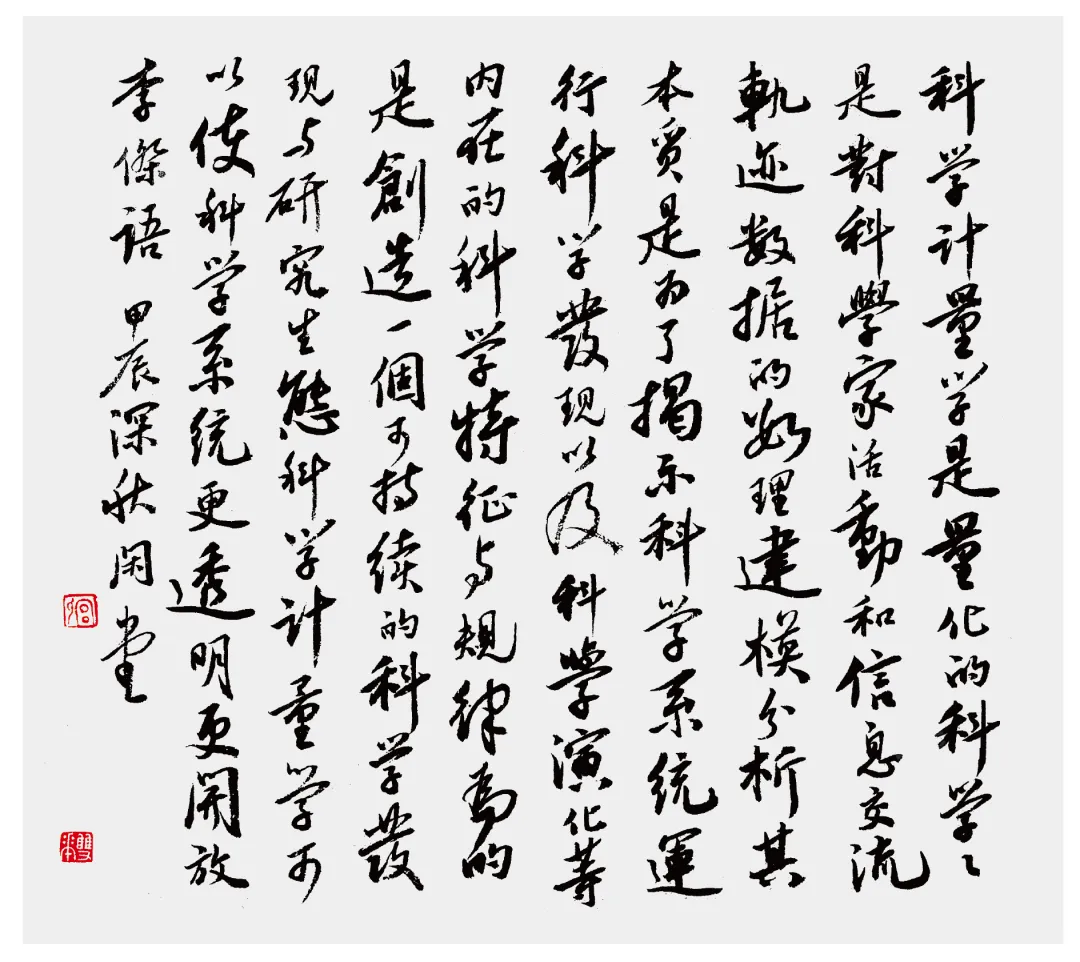 科学计量学是量化的科学〻
是對科學家活動和信息交流
軌迹数据的数理建模分析其
本质是为了揭示科学系统運
行科学發现以及科學演化等
内在的科学特征与規律为的
是創造一個可持续的科学發
现与研究生態科学计量学可
以使科学系统更透明更開放
李傑語 甲辰深秋闲堂